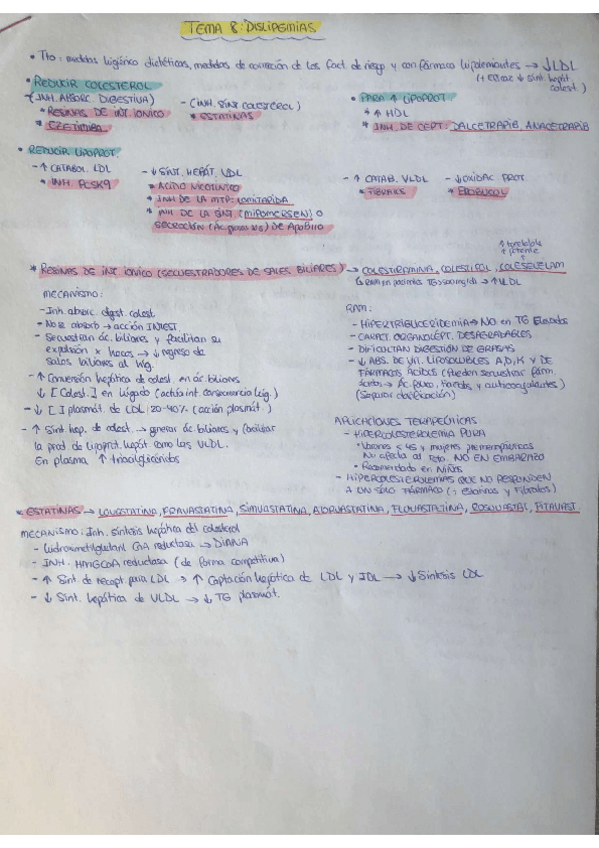 TEMA 8: DISLIPEMIAS
• Tto: medidas higiénico dietéticas, medidas de corrección de los fact. de riesgo y con fármacos hipolemiantes → ↓LDL
(+ eficaz ↓ sint. hepát. colest.)
• REDUCIR COLESTEROL
- (INH. ABSORC. DIGESTIVA)
* RESINAS DE INT. IÓNICO
* EZETIMIBA
- (INH. SÍNT COLESTEROL)
* ESTATINAS
* PARA ↑ LIPOPROT.
- ↑ HDL
* INH. DE CEPT: DALCETRAPIB, ANACETRAPIB
• REDUCIR LIPOPROT.
- ↑ CATABOL. LDL
* INH. PCSK9
- ↓ SÍNT. HEPÁT. LDL
* ÁCIDO NICOTÍNICO
* INH DE LA MTP: LOMITAPIDA
* INH DE LA SINT (MIPOMERSEN) O
SECRECIÓN (Ác. grasos ω3) DE Apo B100
- ↑ CATAB. VLDL
* FIBRATOS
- ↓ OXIDAC PROT.
* PROBUCOL
* RESINAS DE INT IÓNICO (SECUESTRADORES DE SALES BILIARES) → COLESTIRAMINA, COLESTIPOL, COLESEVELAM
↑ tolerable
↑ potente
↳ RAM en pacientes TG>500mg/dl → ↑ VLDL
MECANISMO:
- Inh. absorc. digest. colest.
- No se absorb → acción INTEST.
- Secuestran ác. biliares y facilitan su
expulsión x heces → ↓ regreso de
sales biliares al híg.
- ↑ Conversión hepática de colest. en ác. biliares
↓ [Colest.] en hígado
- ↓ [ ] plasmát. de LDL 20-40% (acción plasmát.)
- ↑ Sint hep. de colest. → generar ác. biliares y facilitar
la prod de lipoprot. hepát como las VLDL.
En plasma ↑ triacilglicéridos
RAM:
- HIPERTRIGLICERIDEMIA → NO en TG Elevados
- CARACT. ORGANOLÉPT. DESAGRADABLES
- DIFICULTAN DIGESTIÓN DE GRASAS
- ↓ ABS. DE VIT. LIPOSOLUBLES A,D,K Y DE
FÁRMACOS ÁCIDOS (Pueden secuestrar fárm.
ácidos → Ác. fólico, tiazidas y anticoagulantes)
(Separar dosificación)
APLICACIONES TERAPÉUTICAS
- HIPERCOLESTEROLEMIA PURA
• Varones < 45 y mujeres premenopáusicas
No afecta al feto. NO EN EMBARAZO
• Recomendado en NIÑOS
- HIPERCOLESTEROLEMIAS QUE NO RESPONDEN
A UN SOLO FÁRMACO (+ estatinas y Fibratos)
* ESTATINAS → LOVASTATINA, PRAVASTATINA, SIMVASTATINA, ATORVASTATINA, FLUVASTATINA, ROSUVASTAT, PITAVAST
MECANISMO: Inh. síntesis hepática del colesterol
- hidroximetilglutaril CoA reductasa → DIANA
- INH. HMGCOA reductasa (de forma competitiva)
- ↑ Sint. de recept para LDL → ↑ Captación hepática de LDL y IDL → ↓ Síntesis LDL
- ↓ Sint. hepática de VLDL → ↓ TG plasmát.